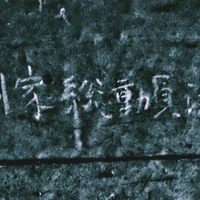 家総動員